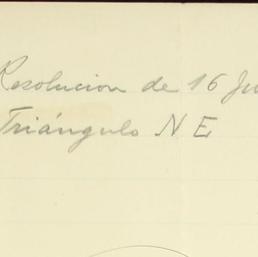 Resolucion de 16 Ju
Triángulo N E